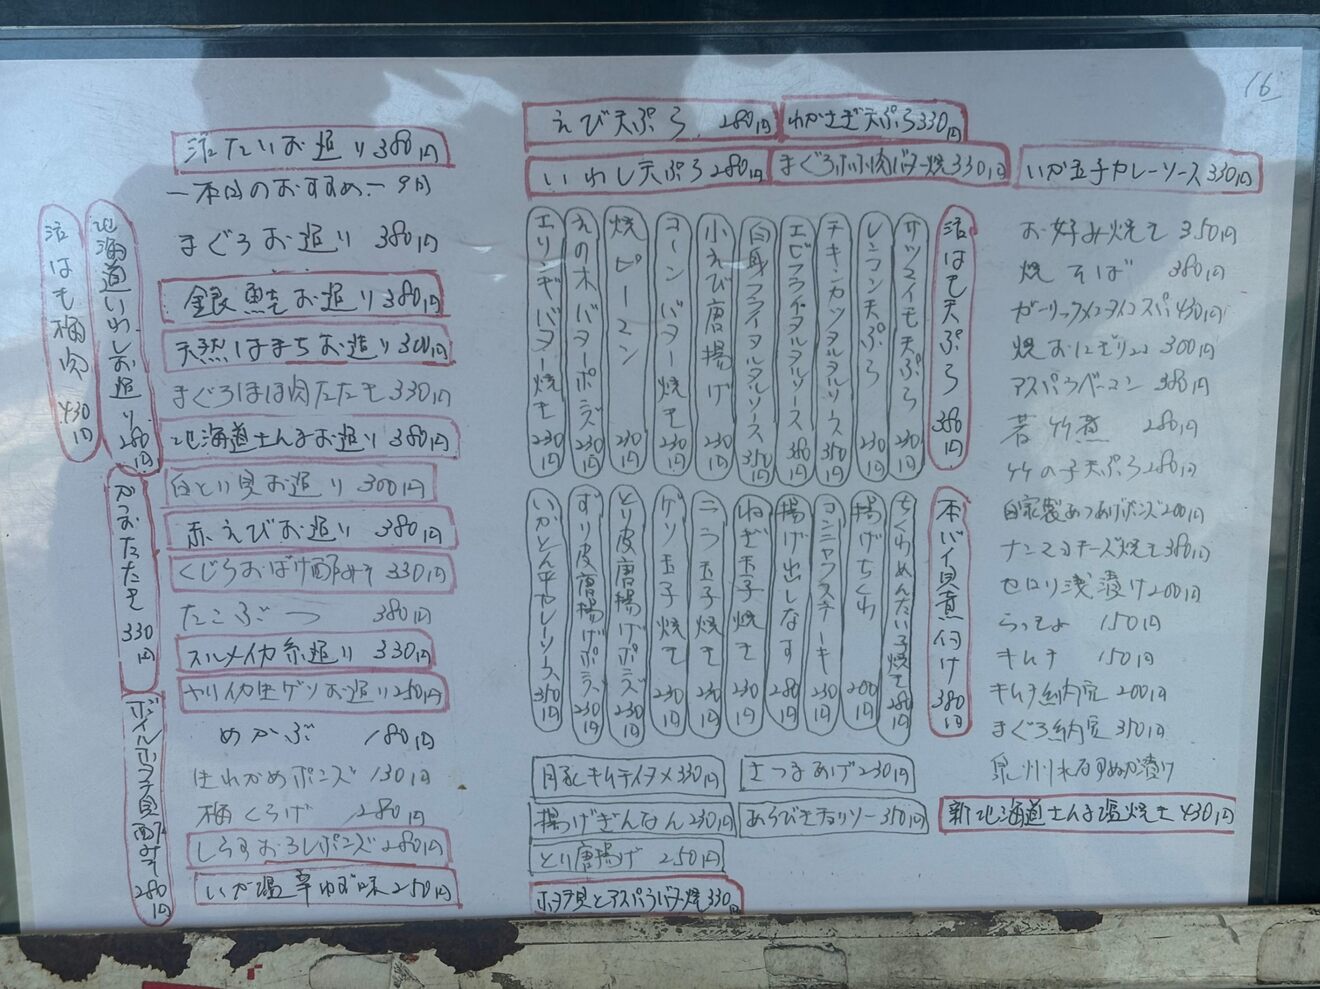 16
えび天ぷら 280円
わかさぎ天ぷら 330円
いわし天ぷら 280円
まぐろホホ肉バター焼 330円
いか玉子カレーソース 330円
活はも梅肉 430円
北海道いわしお造り 280円
かつおたたき 330円
ボイルホタテ貝酢みそ 280円
活たいお造り 380円
一本日のおすすめ一 9月
まぐろお造り 380円
銀鮭お造り 380円
天然はまちお造り 300円
まぐろほほ肉たたき 330円
北海道さんまお造り 380円
白とり貝お造り 300円
赤えびお造り 380円
くじらおばけ酢みそ 330円
たこぶつ 380円
スルメイカ糸造り 330円
ヤリイカ生ゲソお造り 250円
めかぶ 180円
はれかめポンズ 130円
梅くらげ 280円
しらすおろしポンズ 280円
いか塩辛ゆず味 250円
活はも天ぷら 380円
サツマイモ天ぷら 230円
レンコン天ぷら 230円
チキンカツタルタルソース 350円
エビフライタルタルソース 380円
白身フライタルタルソース 350円
小えび唐揚げ 230円
コーンバター焼き 230円
焼ピーマン 230円
えの木バターポンズ 230円
エリンギバター焼き 230円
本バイ貝煮付け 380円
ちくわめんたい子焼き 280円
揚げちくわ 200円
コンニャクステーキ 230円
揚げ出しなす 280円
ねぎ玉子焼き 230円
ニラ玉子焼き 230円
ゲソ玉子焼き 230円
とり皮唐揚げポンズ 230円
ずり皮唐揚げポンズ 230円
いかとん平カレーソース 350円
豚キムチイタメ 330円
さつまあげ 230円
揚げぎんなん 230円
あらびきチョリソー 350円
とり唐揚げ 250円
ホタテ貝とアスパラバター焼 330円
お好み焼き 350円
焼そば 380円
ガーリックメンタイコスパ 430円
焼おにぎり 300円
アスパラベーコン 380円
若竹煮 280円
竹の子天ぷら 280円
自家製あつあげポンズ 200円
チーズ焼き 380円
セロリ浅漬け 200円
らっきょ 150円
キムチ 150円
キムチ納豆 200円
まぐろ納豆 350円
泉州水なすぬか漬け
新北海道さんま塩焼き 430円